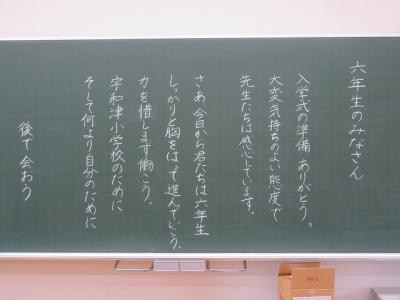 六年生のみなさん
入学式の準備 ありがとう。
大変気持ちのよい態度で
先生たちは感心しています。
さあ 今日から君たちは六年生
しっかりと胸をはって進んでいこう。
力を惜します働こう。
宇和津小学校のために
そして何より自分のために
後で会おう